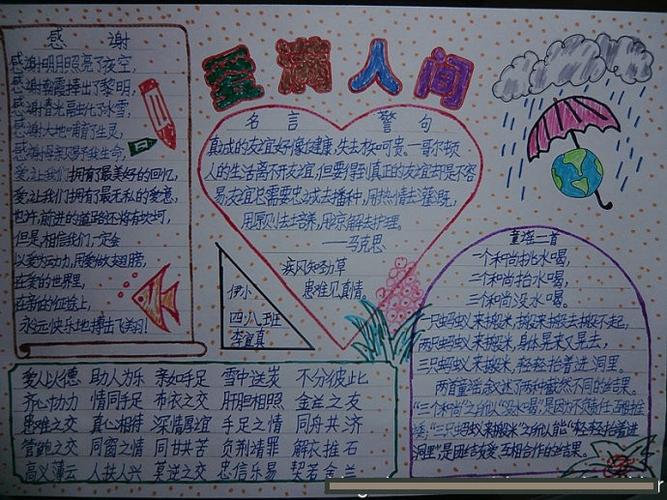 爱满人间
感谢
感谢明月照亮了夜空,
感谢朝霞捧出了黎明,
感谢春光融化了冰雪,
感谢大地哺育了生灵,
感谢母亲赐予我生命,
爱让我们拥有最美好的回忆,
爱让我们拥有了最无私的爱意,
也许,前进的道路还将有坎坷,
但是,相信我们,一定会
以爱为动力,用爱做支翅膀,
在爱的世界里,
在新的征途上,
永远快乐地搏击飞翔!
名言警句
真诚的友谊好像健康,失去才知可贵。—哥尔顿
人的生活离不开友谊,但要得到真正的友谊却是不容
易;友谊总需要忠诚去播种,用热情去灌溉,
用原则去培养,用谅解去护理。
——马克思
疾风知劲草
患难见真情。
伊小
四.八班
李宜真
童谣二首
一个和尚挑水喝,
二个和尚抬水喝,
三个和尚没水喝。
一只蚂蚁来搬米,搬来搬去搬不起,
两只蚂蚁来搬米,身体晃来又晃去,
三只蚂蚁来搬米,轻轻抬着进洞里。
两首童谣叙述了两种截然不同的结果。
“三个和尚”之所以“没水喝”是因为不负责任、互相推
诿;“三只蚂蚁来搬米”之所以能“轻轻抬着进
洞里”,是团结友爱、互相合作的结果。
爱人以德 助人为乐 亲如手足 雪中送炭 不分彼此
齐心协力 情同手足 布衣之交 肝胆相照 金兰之友
患难之交 真心相待 深情厚谊 手足之情 同舟共济
管鲍之交 同窗之情 同甘共苦 负荆请罪 解衣推石
高义薄云 人扶人兴 莫逆之交 忠信乐易 契若金兰